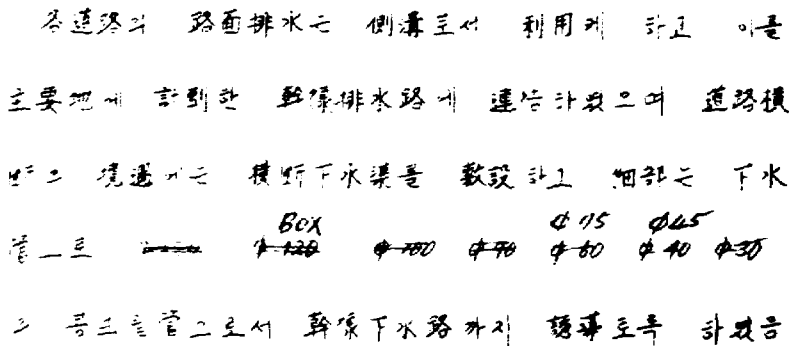 各道路의 路面排水는 側溝로서 利用케 하고 이를
主要地에 計劃한 幹線排水路에 連결하였으며 道路橫
断の 境遇에는 橫断下水渠를 敷設하고 細部는 下水
管으로 BOX φ120 φ100 φ90 φ75 φ60 φ45 φ40 φ30
의 콩크리管으로서 幹線下水路까지 誘導토록 하였음